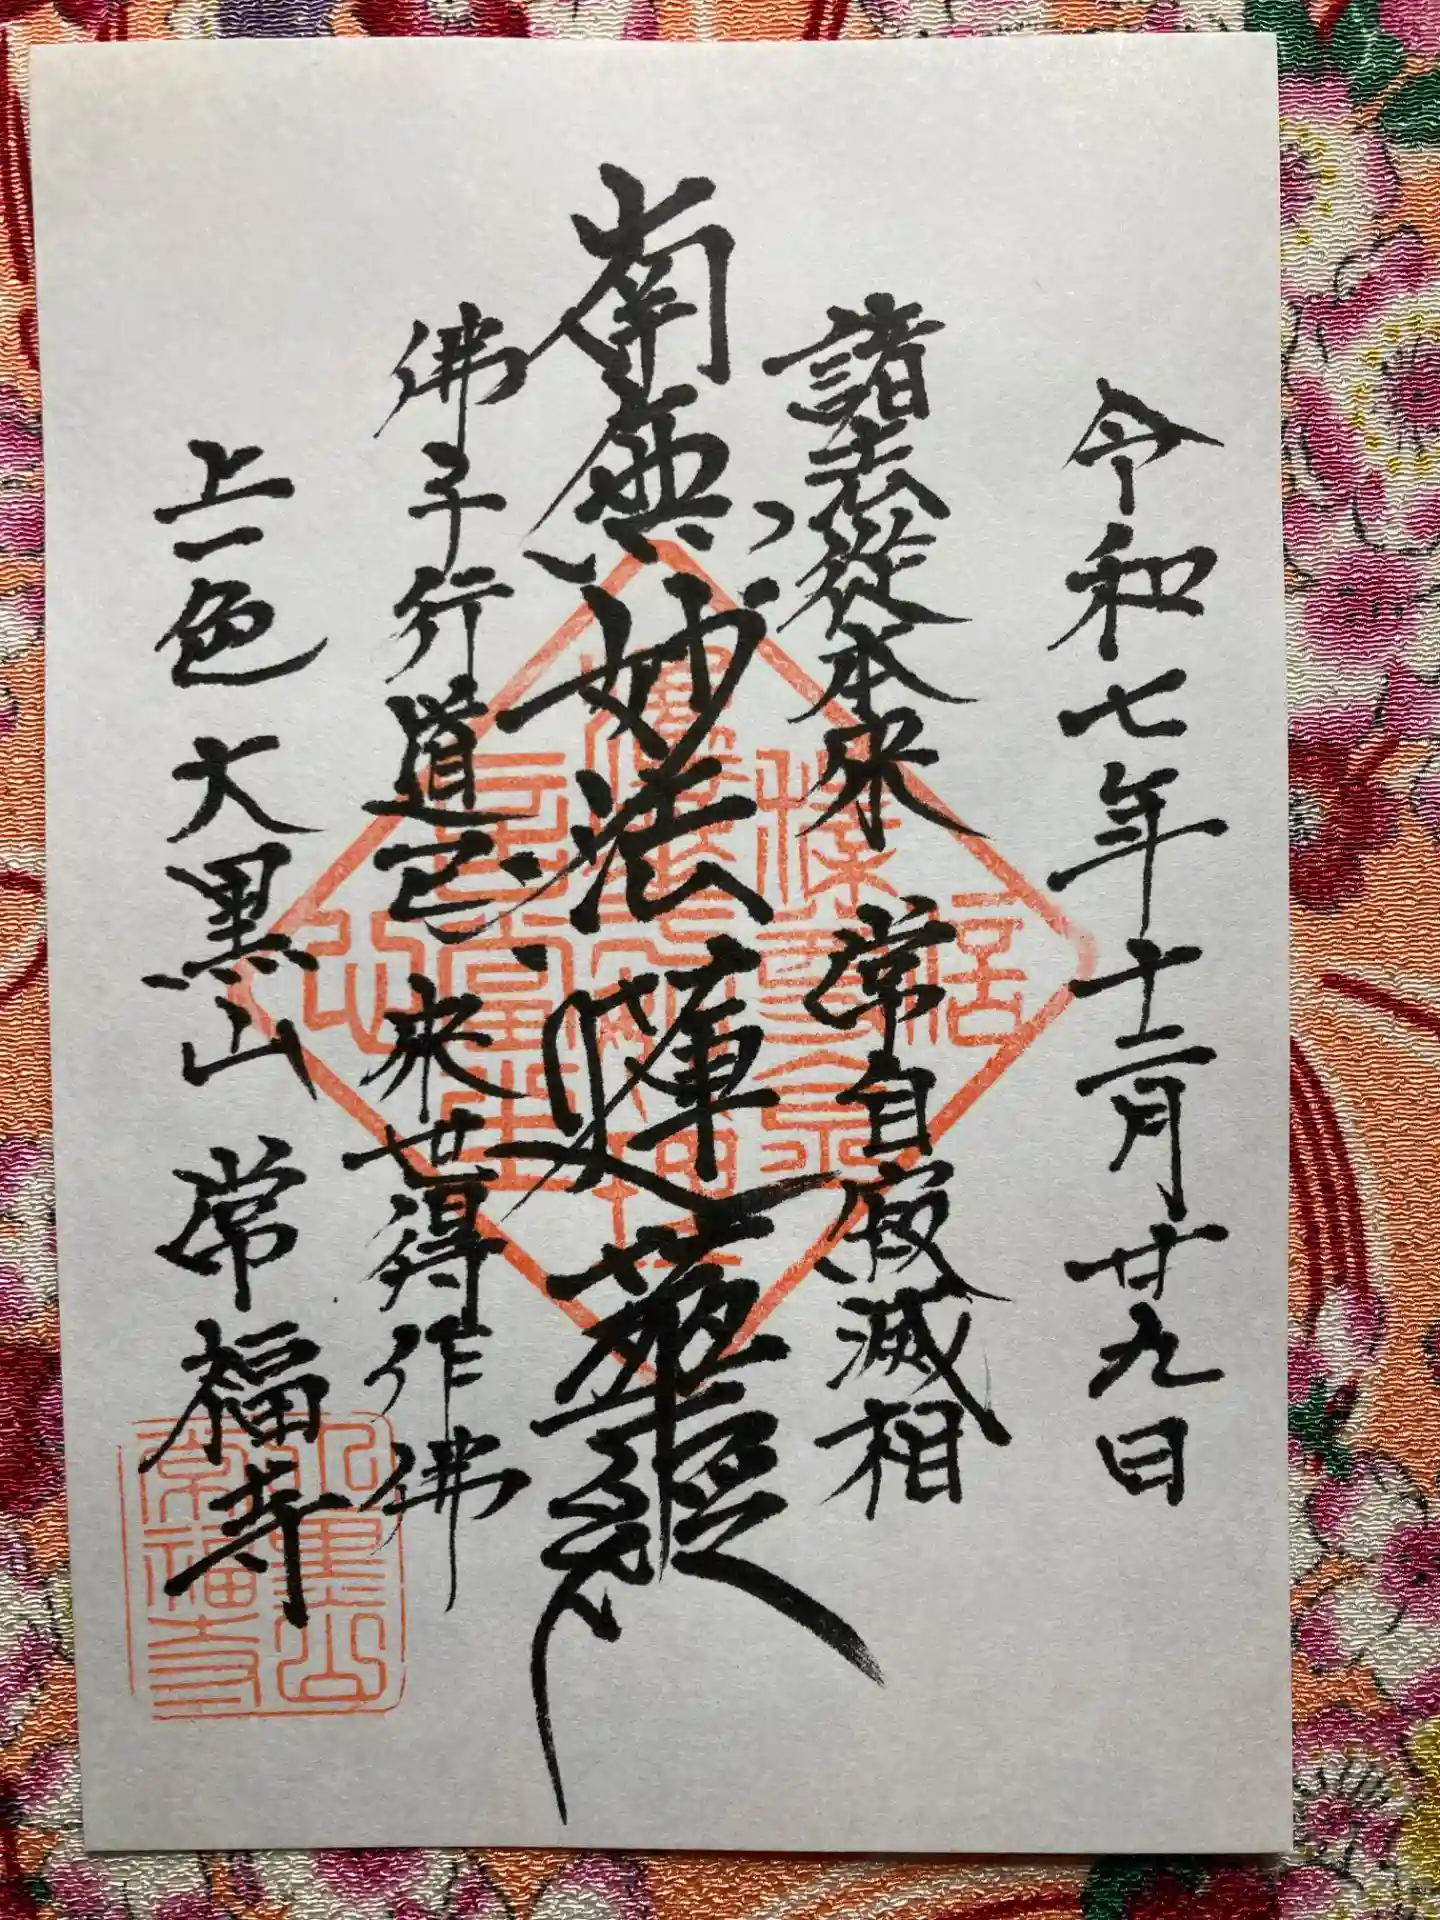 令和七年十二月廿九日
諸法從本來 常自寂滅相
南無妙法蓮華經
佛子行道已 來世得作佛
上一色 大黒山 常福寺
大黒山
常福寺